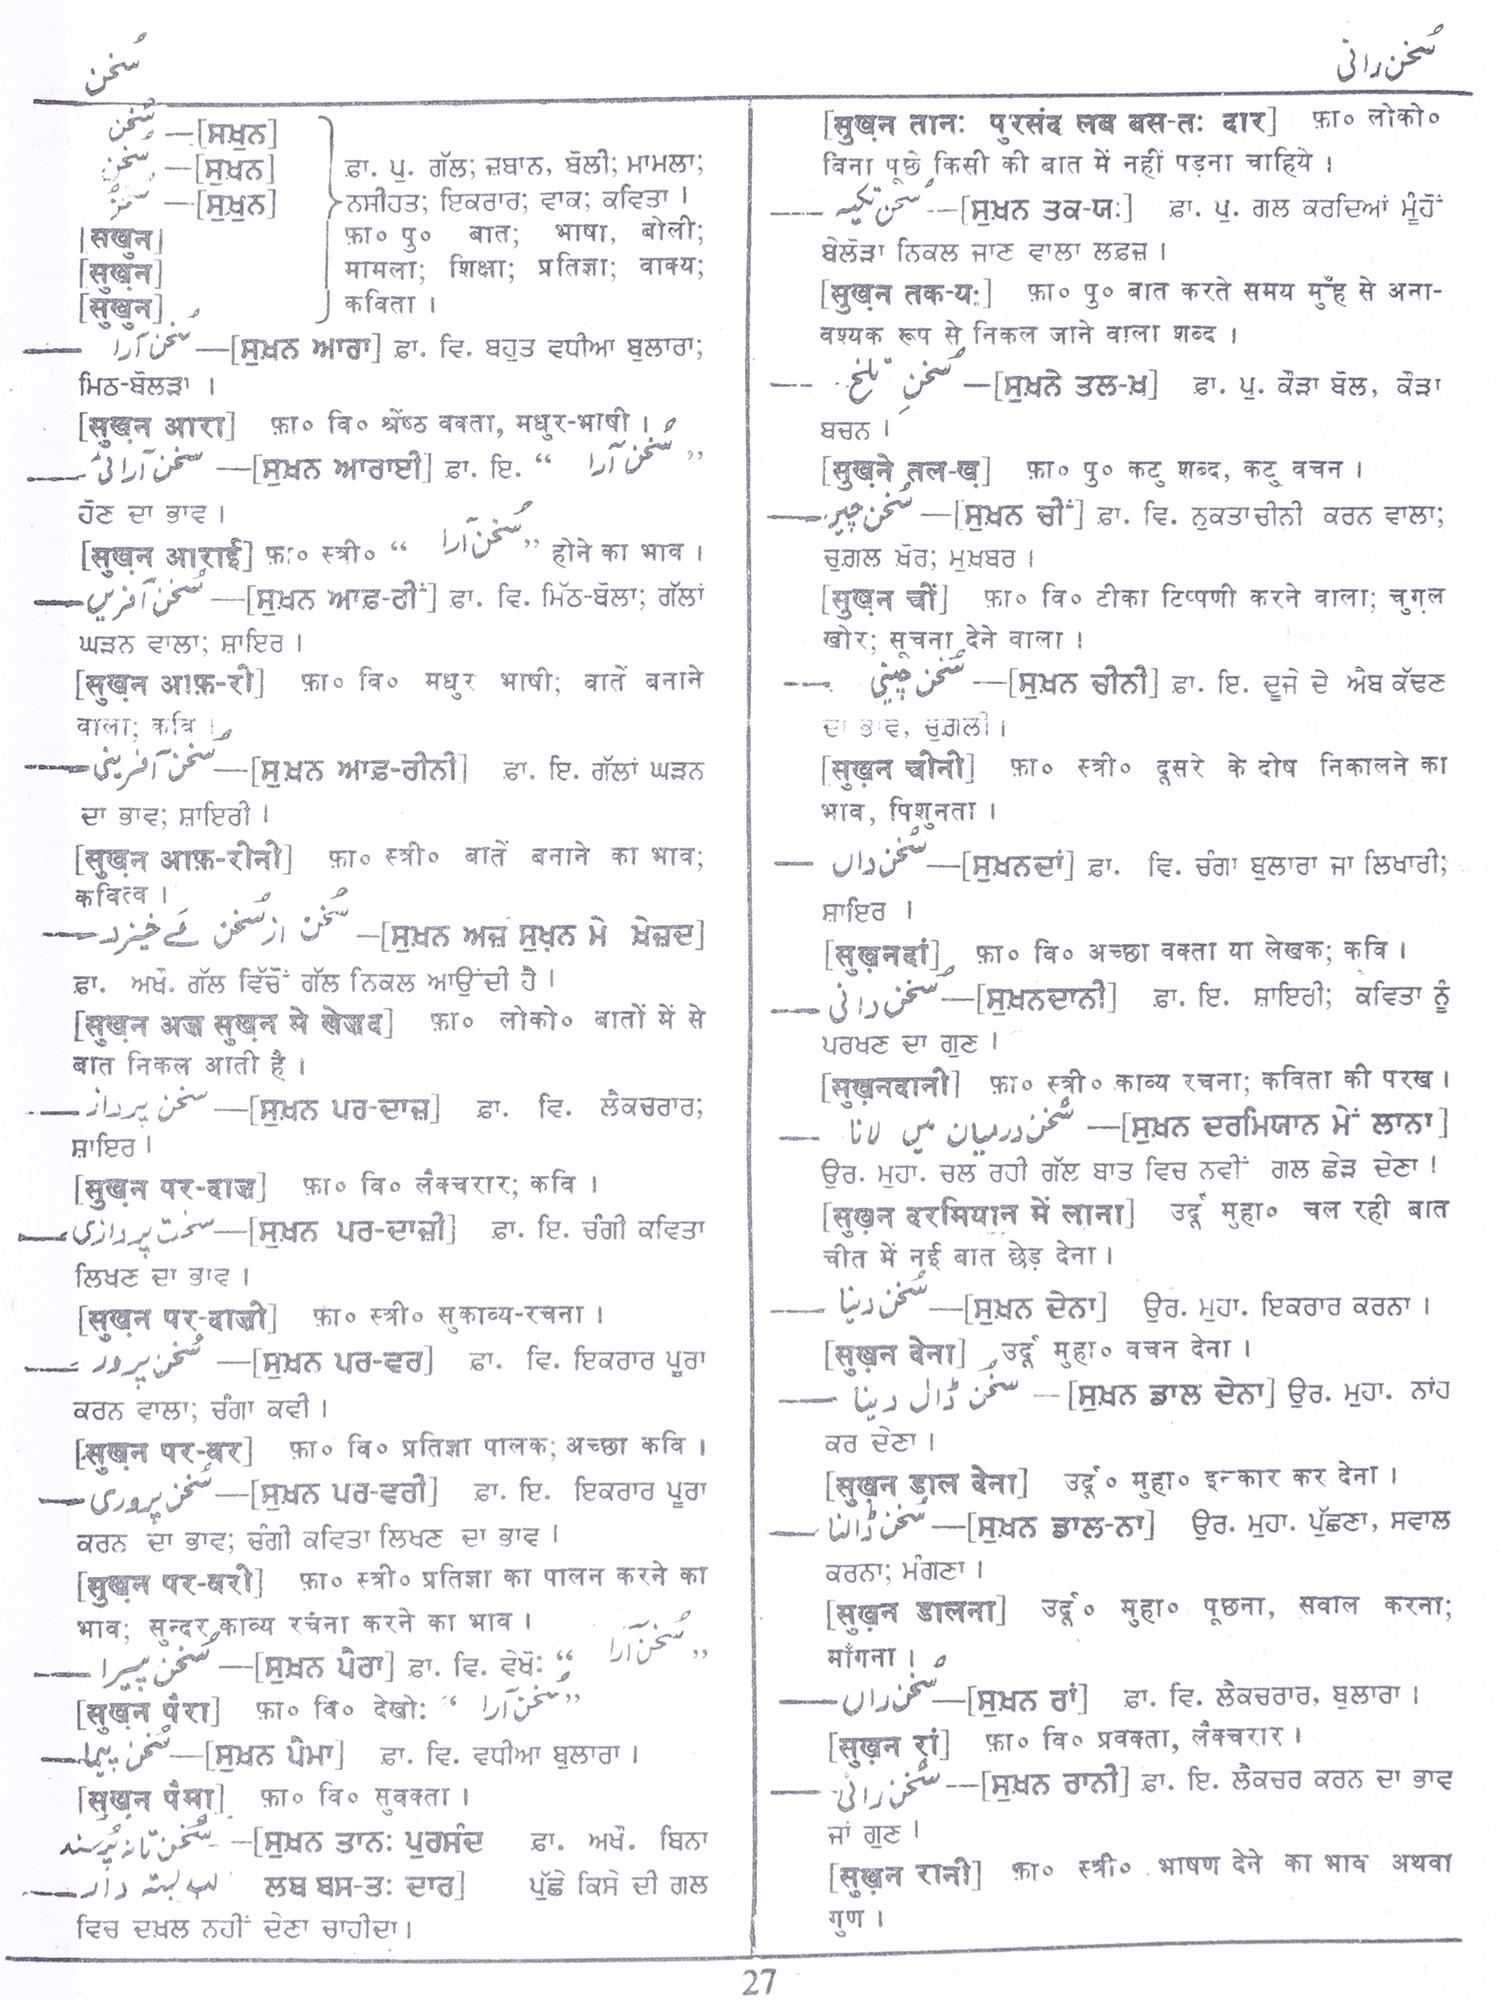 سُخن
سُخن رانی
سُخن —[ਸਖ਼ੁਨ]
سُخَن —[ਸੁਖ਼ਨ]
سُخُن —[ਸੁਖ਼ੁਨ]
ਫ਼ਾ. ਪੁ. ਗੱਲ; ਜ਼ਬਾਨ, ਬੋਲੀ; ਮਾਮਲਾ;
ਨਸੀਹਤ; ਇਕਰਾਰ; ਵਾਕ; ਕਵਿਤਾ ।
[सख़ुन]
[सुख़न]
[सुख़ुन]
फ़ा० पु० बात; भाषा, बोली;
मामला; शिक्षा; प्रतिज्ञा; वाक्य;
कविता ।
سُخن آرا —[ਸੁਖ਼ਨ ਆਰਾ] ਫ਼ਾ. ਵਿ. ਬਹੁਤ ਵਧੀਆ ਬੁਲਾਰਾ;
ਮਿਠ-ਬੋਲੜਾ ।
[सुख़न आरा] फ़ा० वि० श्रेष्ठ वक्ता, मधुर-भाषी ।
سُخن آرائی —[ਸੁਖ਼ਨ ਆਰਾਈ] ਫ਼ਾ. ਇ. “ سُخن آرا ”
ਹੋਣ ਦਾ ਭਾਵ ।
[सुख़न आराई] फ़ा० स्त्री० “ سُخن آرا ” होने का भाव ।
سُخن آفریں —[ਸੁਖ਼ਨ ਆਫ਼-ਰੀਂ] ਫ਼ਾ. ਵਿ. ਮਿੱਠ-ਬੋਲਾ; ਗੱਲਾਂ
ਘੜਨ ਵਾਲਾ; ਸ਼ਾਇਰ ।
[सुख़न आफ़-रीं] फ़ा० वि० मधुर भाषी; बातें बनाने
वाला; कवि ।
سُخن آفرینی —[ਸੁਖ਼ਨ ਆਫ਼-ਰੀਨੀ] ਫ਼ਾ. ਇ. ਗੱਲਾਂ ਘੜਨ
ਦਾ ਭਾਵ; ਸ਼ਾਇਰੀ ।
[सुख़न आफ़-रीनी] फ़ा० स्त्री० बातें बनाने का भाव;
कवित्व ।
سُخن از سُخن مے خیزد —[ਸੁਖ਼ਨ ਅਜ਼ ਸੁਖ਼ਨ ਮੇ ਖ਼ੇਜ਼ਦ]
ਫ਼ਾ. ਅਖੌ. ਗੱਲ ਵਿੱਚੋਂ ਗੱਲ ਨਿਕਲ ਆਉਂਦੀ ਹੈ ।
[सुख़न अज़ सुख़न मे खेज़द] फ़ा० लोको० बातों में से
बात निकल आती है ।
سخن پرداز —[ਸੁਖ਼ਨ ਪਰ-ਦਾਜ਼] ਫ਼ਾ. ਵਿ. ਲੈਕਚਰਾਰ;
ਸ਼ਾਇਰ ।
[सुख़न पर-दाज़] फ़ा० वि० लैक्चरार; कवि ।
سخن پردازی —[ਸੁਖ਼ਨ ਪਰ-ਦਾਜ਼ੀ] ਫ਼ਾ. ਇ. ਚੰਗੀ ਕਵਿਤਾ
ਲਿਖਣ ਦਾ ਭਾਵ ।
[सुख़न पर-दाज़ी] फ़ा० स्त्री० सुकाव्य-रचना ।
سُخن پرور —[ਸੁਖ਼ਨ ਪਰ-ਵਰ] ਫ਼ਾ. ਵਿ. ਇਕਰਾਰ ਪੂਰਾ
ਕਰਨ ਵਾਲਾ; ਚੰਗਾ ਕਵੀ ।
[सुख़न पर-वर] फ़ा० वि० प्रतिज्ञा पालक; अच्छा कवि ।
سُخن پروری —[ਸੁਖ਼ਨ ਪਰ-ਵਰੀ] ਫ਼ਾ. ਇ. ਇਕਰਾਰ ਪੂਰਾ
ਕਰਨ ਦਾ ਭਾਵ; ਚੰਗੀ ਕਵਿਤਾ ਲਿਖਣ ਦਾ ਭਾਵ ।
[सुख़न पर-वरी] फ़ा० स्त्री० प्रतिज्ञा का पालन करने का
भाव; सुन्दर काव्य रचना करने का भाव ।
سُخن پیرا —[ਸੁਖ਼ਨ ਪੈਰਾ] ਫ਼ਾ. ਵਿ. ਵੇਖੋ: “ سُخن آرا ”
[सुख़न पैरा] फ़ा० वि० देखो: “ سُخن آرا ”
سُخن پیما —[ਸੁਖ਼ਨ ਪੈਮਾ] ਫ਼ਾ. ਵਿ. ਵਧੀਆ ਬੁਲਾਰਾ ।
[सुख़न पैमा] फ़ा० वि० सुवक्ता ।
سُخن تا نہ پُرسند —[ਸੁਖ਼ਨ ਤਾਨ: ਪੁਰਸੰਦ ਫ਼ਾ. ਅਖੌ. ਬਿਨਾ
لب بستہ دار ਲਬ ਬਸ-ਤ: ਦਾਰ] ਪੁੱਛੇ ਕਿਸੇ ਦੀ ਗਲ
ਵਿਚ ਦਖ਼ਲ ਨਹੀਂ ਦੇਣਾ ਚਾਹੀਦਾ।
[सुख़न तान: पुरसंद लब बस-त: दार] फ़ा० लोको०
बिना पूछे किसी की बात में नहीं पड़ना चाहिये ।
سُخن تکیہ —[ਸੁਖ਼ਨ ਤਕ-ਯ:] ਫ਼ਾ. ਪੁ. ਗਲ ਕਰਦਿਆਂ ਮੂੰਹੋਂ
ਬੇਲੋੜਾ ਨਿਕਲ ਜਾਣ ਵਾਲਾ ਲਫ਼ਜ਼ ।
[सुख़न तक-य:] फ़ा० पु० बात करते समय मुँह से अना-
वश्यक रूप से निकल जाने वाला शब्द ।
سُخنِ تلخ —[ਸੁਖ਼ਨੇ ਤਲ-ਖ਼] ਫ਼ਾ. ਪੁ. ਕੌੜਾ ਬੋਲ, ਕੌੜਾ
ਬਚਨ ।
[सुख़ने तल-ख़] फ़ा० पु० कटु शब्द, कटु वचन ।
سُخن چیں —[ਸੁਖ਼ਨ ਚੀਂ] ਫ਼ਾ. ਵਿ. ਨੁਕਤਾਚੀਨੀ ਕਰਨ ਵਾਲਾ;
ਚੁਗ਼ਲ ਖ਼ੋਰ; ਮੁਖ਼ਬਰ ।
[सुख़न चीं] फ़ा० वि० टीका टिप्पणी करने वाला; चुग़ल
खोर; सूचना देने वाला ।
سُخن چینی —[ਸੁਖ਼ਨ ਚੀਨੀ] ਫ਼ਾ. ਇ. ਦੂਜੇ ਦੇ ਐਬ ਕੱਢਣ
ਦਾ ਭਾਵ, ਚੁਗ਼ਲੀ ।
[सुख़न चीनी] फ़ा० स्त्री० दूसरे के दोष निकालने का
भाव, पिशुनता ।
سُخن داں —[ਸੁਖ਼ਨਦਾਂ] ਫ਼ਾ. ਵਿ. ਚੰਗਾ ਬੁਲਾਰਾ ਜਾ ਲਿਖਾਰੀ;
ਸ਼ਾਇਰ ।
[सुख़नदां] फ़ा० वि० अच्छा वक्ता या लेखक; कवि ।
سُخن دانی —[ਸੁਖ਼ਨਦਾਨੀ] ਫ਼ਾ. ਇ. ਸ਼ਾਇਰੀ; ਕਵਿਤਾ ਨੂੰ
ਪਰਖਣ ਦਾ ਗੁਣ ।
[सुख़नदानी] फ़ा० स्त्री० काव्य रचना; कविता की परख ।
سُخن درمیان میں لانا —[ਸੁਖ਼ਨ ਦਰਮਿਯਾਨ ਮੇਂ ਲਾਨਾ]
ਉਰ. ਮੁਹਾ. ਚਲ ਰਹੀ ਗੱਲ ਬਾਤ ਵਿਚ ਨਵੀਂ ਗਲ ਛੇੜ ਦੇਣਾ ।
[सुख़न दरमियान में लाना] उर्दू मुहा० चल रही बात
चीत में नई बात छेड़ देना ।
سُخن دینا —[ਸੁਖ਼ਨ ਦੇਨਾ] ਉਰ. ਮੁਹਾ. ਇਕਰਾਰ ਕਰਨਾ ।
[सुख़न देना] उर्दू मुहा० वचन देना ।
سُخن ڈال دینا —[ਸੁਖ਼ਨ ਡਾਲ ਦੇਨਾ] ਉਰ. ਮੁਹਾ. ਨਾਂਹ
ਕਰ ਦੇਣਾ ।
[सुख़न डाल देना] उर्दू० मुहा० इन्कार कर देना ।
سُخن ڈالنا —[ਸੁਖ਼ਨ ਡਾਲ-ਨਾ] ਉਰ. ਮੁਹਾ. ਪੁੱਛਣਾ, ਸਵਾਲ
ਕਰਨਾ; ਮੰਗਣਾ ।
[सुख़न डालना] उर्दू० मुहा० पूछना, सवाल करना;
माँगना ।
سُخن راں —[ਸੁਖ਼ਨ ਰਾਂ] ਫ਼ਾ. ਵਿ. ਲੈਕਚਰਾਰ, ਬੁਲਾਰਾ ।
[सुख़न रां] फ़ा० वि० प्रवक्ता, लैक्चरार ।
سُخن رانی —[ਸੁਖ਼ਨ ਰਾਨੀ] ਫ਼ਾ. ਇ. ਲੈਕਚਰ ਕਰਨ ਦਾ ਭਾਵ
ਜਾਂ ਗੁਣ ।
[सुख़न रानी] फ़ा० स्त्री० भाषण देने का भाव अथवा
गुण ।
27